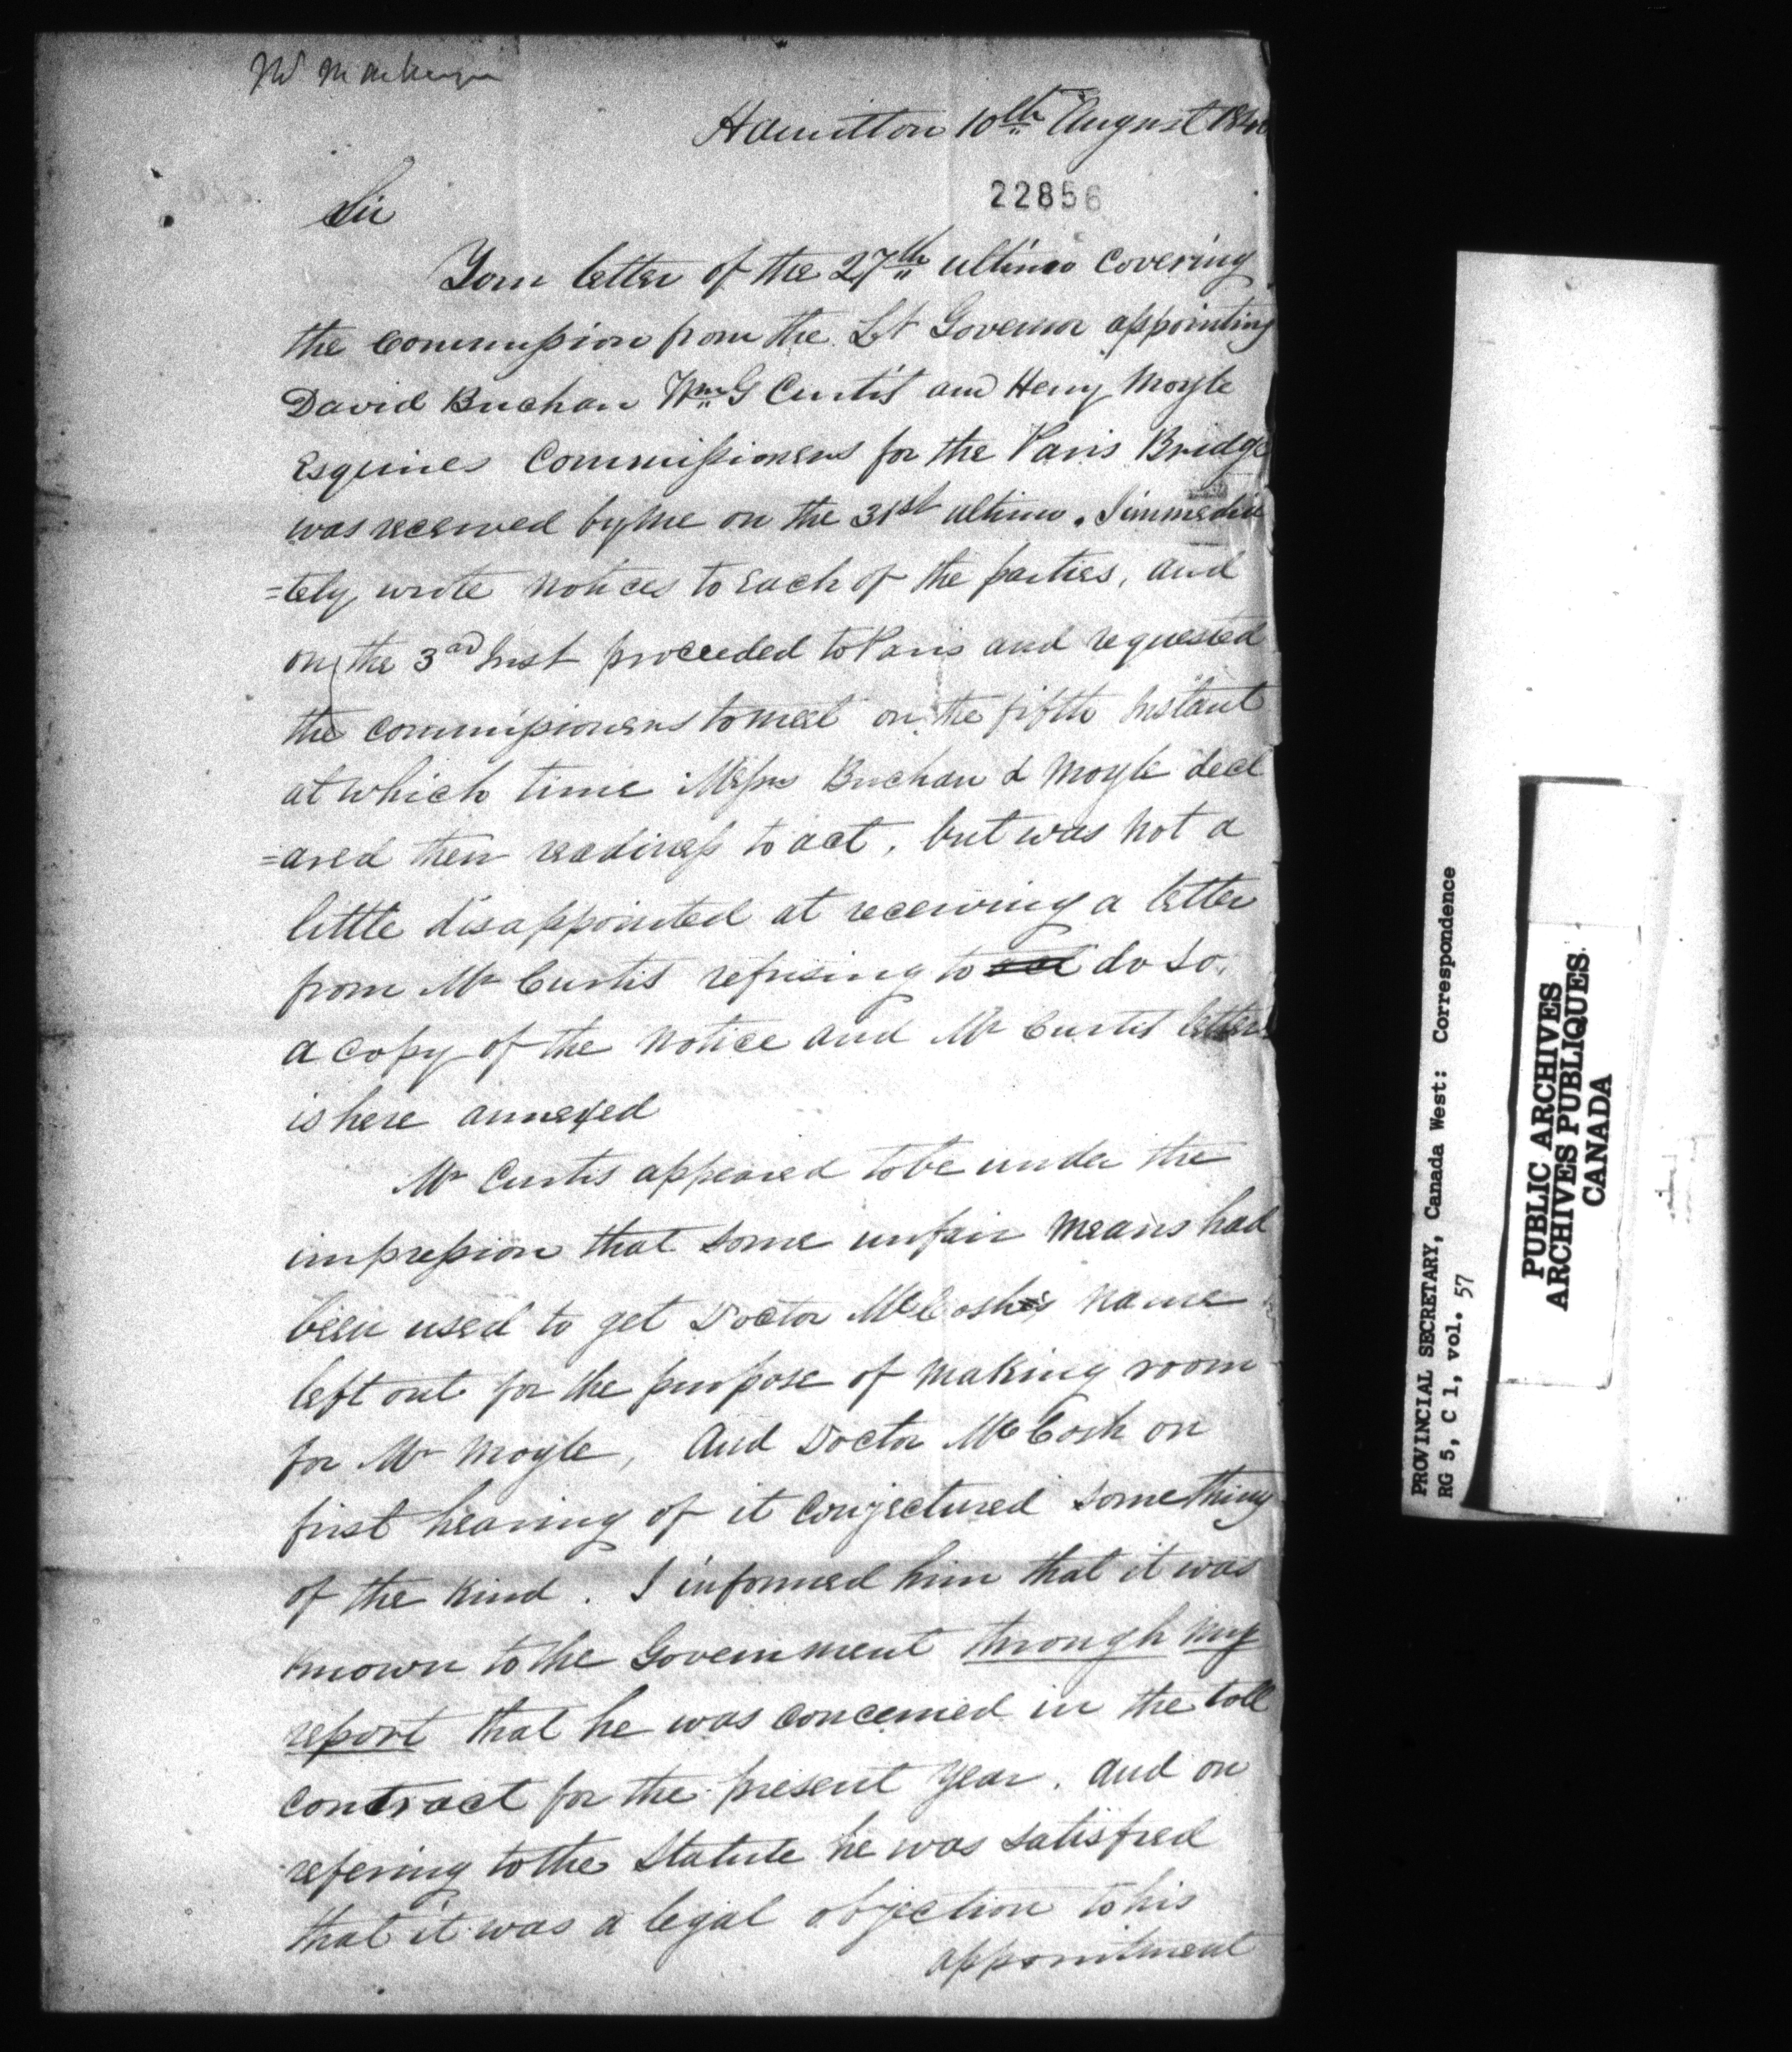 Hamilton 10th August 184
22856
Sir
Your letter of the 27th ultimo covering
the Commission from the Lt Governor appointing
David Buchan Wm G Curtis and Henry Moyle
Esquires Commissioners for the Paris Bridge
was received by me on the 31st ultimo. I immedia
=tely wrote notices to each of the parties, and
on the 3rd Inst proceeded to Paris and requested
the commissioners to meet on the fifth Instant
at which time Messrs Buchan & Moyle decl
=ared their readiness to act, but was not a
little disappointed at receiving a letter
from Mr Curtis refusing to act do so.
a copy of the notice and Mr Curtis letter
is here annexed
Mr Curtis appeared to be under the
impression that some unfair means had
been used to get Doctor McCosh's name
left out for the purpose of making room
for Mr Moyle, And Doctor McCosh on
first hearing of it conjectured something
of the kind. I informed him that it was
known to the Government through my
report that he was concerned in the toll
contract for the present year. and on
refering to the Statute he was satisfied
that it was a legal objection to his
appointment
PROVINCIAL SECRETARY, Canada West: Correspondence
RG 5, C 1, vol. 57
PUBLIC ARCHIVES
ARCHIVES PUBLIQUES
CANADA